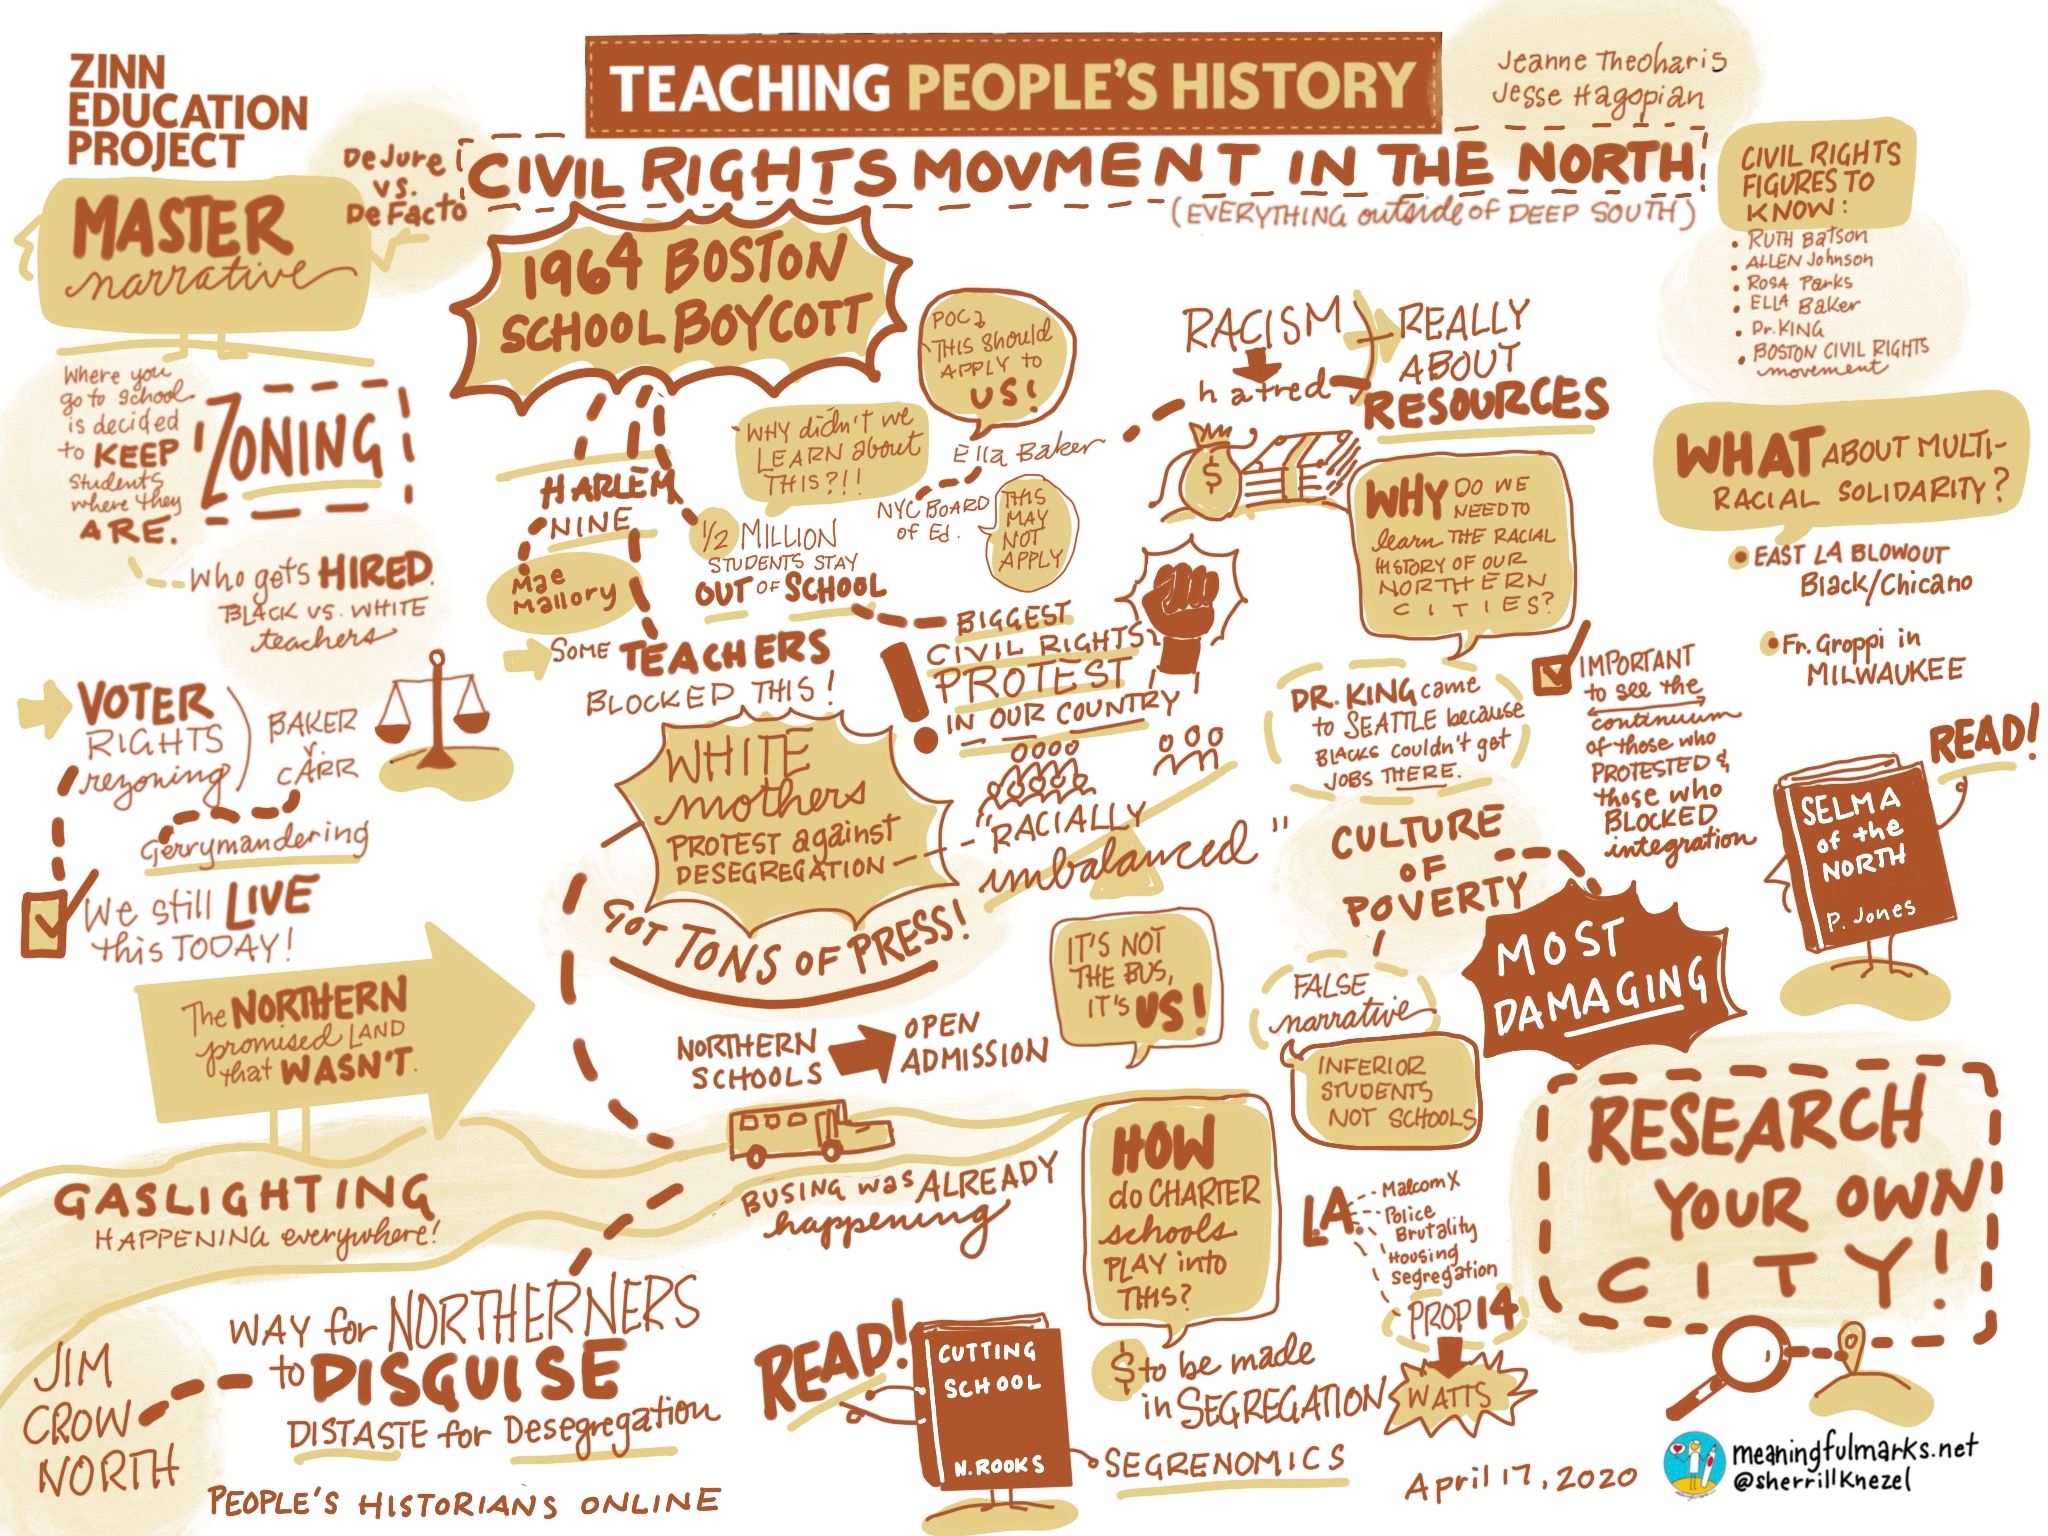 ZINN
EDUCATION
PROJECT
TEACHING PEOPLE'S HISTORY
Jeanne Theoharis
Jesse Hagopian
CIVIL RIGHTS MOVMENT IN THE NORTH
(EVERYTHING outside of DEEP SOUTH)
DeJure
vs.
DeFacto
MASTER
narrative
Where you
go to school
is decided
to KEEP
students
where they
ARE.
ZONING
Who gets HIRED.
BLACK VS. WHITE
teachers
VOTER
RIGHTS
rezoning
BAKER
v.
CARR
Gerrymandering
We still LIVE
this TODAY!
The NORTHERN
promised LAND
that WASN'T.
GASLIGHTING
HAPPENING everywhere!
JIM
CROW
NORTH
WAY for NORTHERNERS
to DISGUISE
DISTASTE for Desegregation
PEOPLE'S HISTORIANS ONLINE
1964 BOSTON
SCHOOL BOYCOTT
HARLEM
NINE
Mae
Mallory
WHY didn't we
LEARN about
THIS?!!
1/2 MILLION
STUDENTS STAY
OUT OF SCHOOL
Some TEACHERS
BLOCKED THIS!
POC
THIS should
APPLY to
US!
Ella Baker
NYC BOARD
of Ed.
THIS
MAY
NOT
APPLY
BIGGEST
CIVIL RIGHTS
PROTEST
IN OUR COUNTRY
WHITE
mothers
PROTEST against
DESEGREGATION
GOT TONS OF PRESS!
"RACIALLY
imbalanced"
NORTHERN
SCHOOLS
OPEN
ADMISSION
IT'S NOT
THE BUS,
IT'S US!
BUSING was ALREADY
happening
READ!
CUTTING
SCHOOL
N. ROOKS
HOW
do CHARTER
schools
PLAY into
THIS?
$ to be made
in SEGREGATION
SEGRENOMICS
RACISM
hatred
REALLY
ABOUT
RESOURCES
$
WHY DO WE
NEED TO
learn THE RACIAL
HISTORY OF OUR
NORTHERN
CITIES?
DR. KING came
to SEATTLE because
BLACKS couldn't get
JOBS THERE.
CULTURE
OF
POVERTY
MOST
DAMAGING
FALSE
narrative
INFERIOR
STUDENTS
NOT SCHOOLS
L.A.
Malcom X
Police
Brutality
Housing
segregation
PROP 14
WATTS
CIVIL RIGHTS
FIGURES TO
KNOW:
• RUTH Batson
• ALLEN Johnson
• ROSA Parks
• ELLA Baker
• Dr. KING
• BOSTON CIVIL RIGHTS
movement
WHAT ABOUT MULTI-
RACIAL SOLIDARITY?
• EAST LA BLOWOUT
Black/Chicano
• Fr. Groppi in
MILWAUKEE
IMPORTANT
to see the
continuum
of those who
PROTESTED &
those who
BLOCKED
integration
READ!
SELMA
of the
NORTH
P. Jones
RESEARCH
YOUR OWN
CITY!
April 17, 2020
meaningfulmarks.net
@sherrillknezel